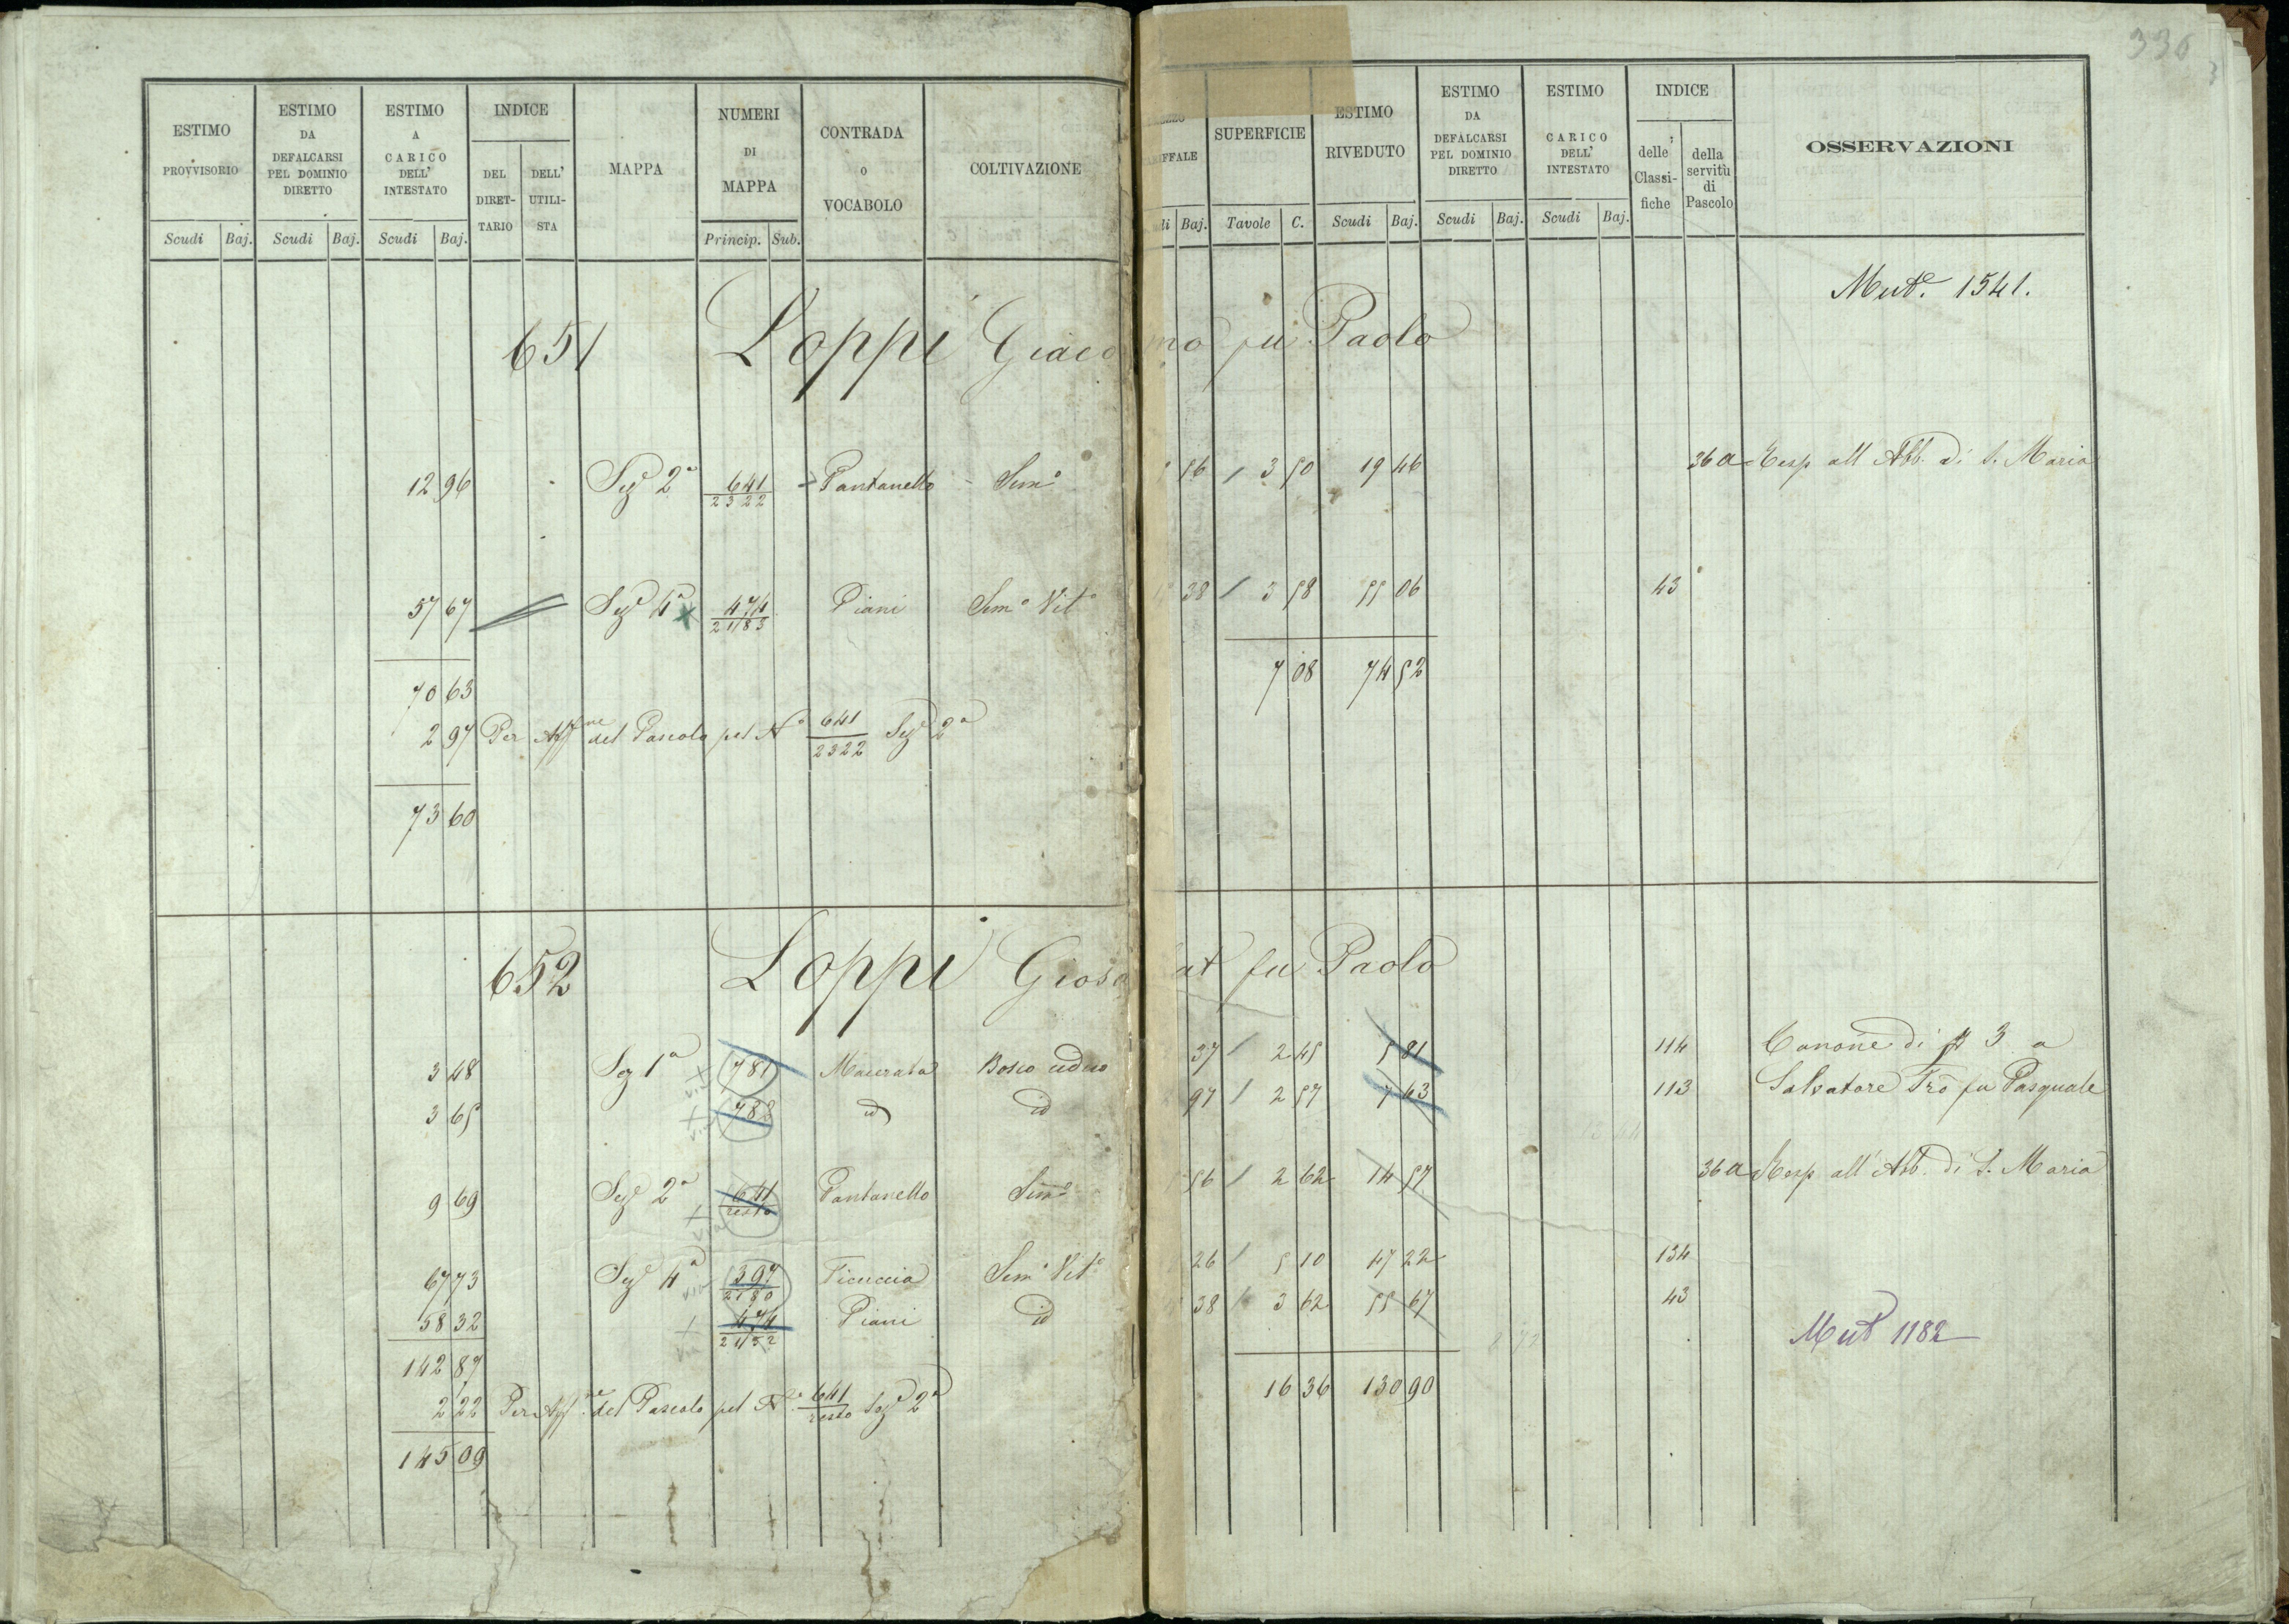 336
ESTIMO PROVVISORIO
ESTIMO DA DEFALCARSI PEL DOMINIO DIRETTO
ESTIMO A CARICO DELL' INTESTATO
INDICE
DEL DIRET-TARIO
DELL' UTILI-STA
MAPPA
NUMERI DI MAPPA
CONTRADA O VOCABOLO
COLTIVAZIONE
Scudi Baj. Scudi Baj. Scudi Baj. Princip. Sub.
IFFALE
SUPERFICIE
ESTIMO RIVEDUTO
ESTIMO DA DEFALCARSI PEL DOMINIO DIRETTO
ESTIMO CARICO DELL' INTESTATO
INDICE
delle Classi-fiche
della servitù di Pascolo
OSSERVAZIONI
di Baj. Tavole C. Scudi Baj. Scudi Baj. Scudi Baj.
Mut.e 1541.
651 Loppi Giacomo fu Paolo
12 96 Sez.e 2a 641/2322 Pantanello Sem.o 56 / 3 50 19 46 36 a Resp all Abb. di S. Maria
57 67 Sez.e 4a x 474/2183 Piani Sem.o Vit.o 38 / 3 58 55 06 43
70 63 7 08 74 52
2 97 Per Aff.ne del Pascolo pel N.o 641/2322 Sez.e 2a
73 60
652 Loppi Giosafat fu Paolo
3 48 Sez 1a 781 Macerata Bosco ceduo 37 / 2 45 5 81 114 Canone di 3 a
3 65 788 id id 97 / 2 57 7 63 113 Salvatore Frō fu Pasquale
9 69 Sez.e 2a 641/resto Pantanello Sem.o 56 / 2 62 14 57 36 a Resp all'Abb. di S. Maria
67 73 Sez.e 4a 397/2180 Ficuccia Sem.o Vit.o 26 / 5 10 47 22 134
58 32 474/2182 Piani id 38 / 3 62 55 67 43
Mut 1182
142 87 16 36 130 90
2 22 Per Aff.ne del Pascolo pel N.o 641/resto Sez.e 2a
145 09